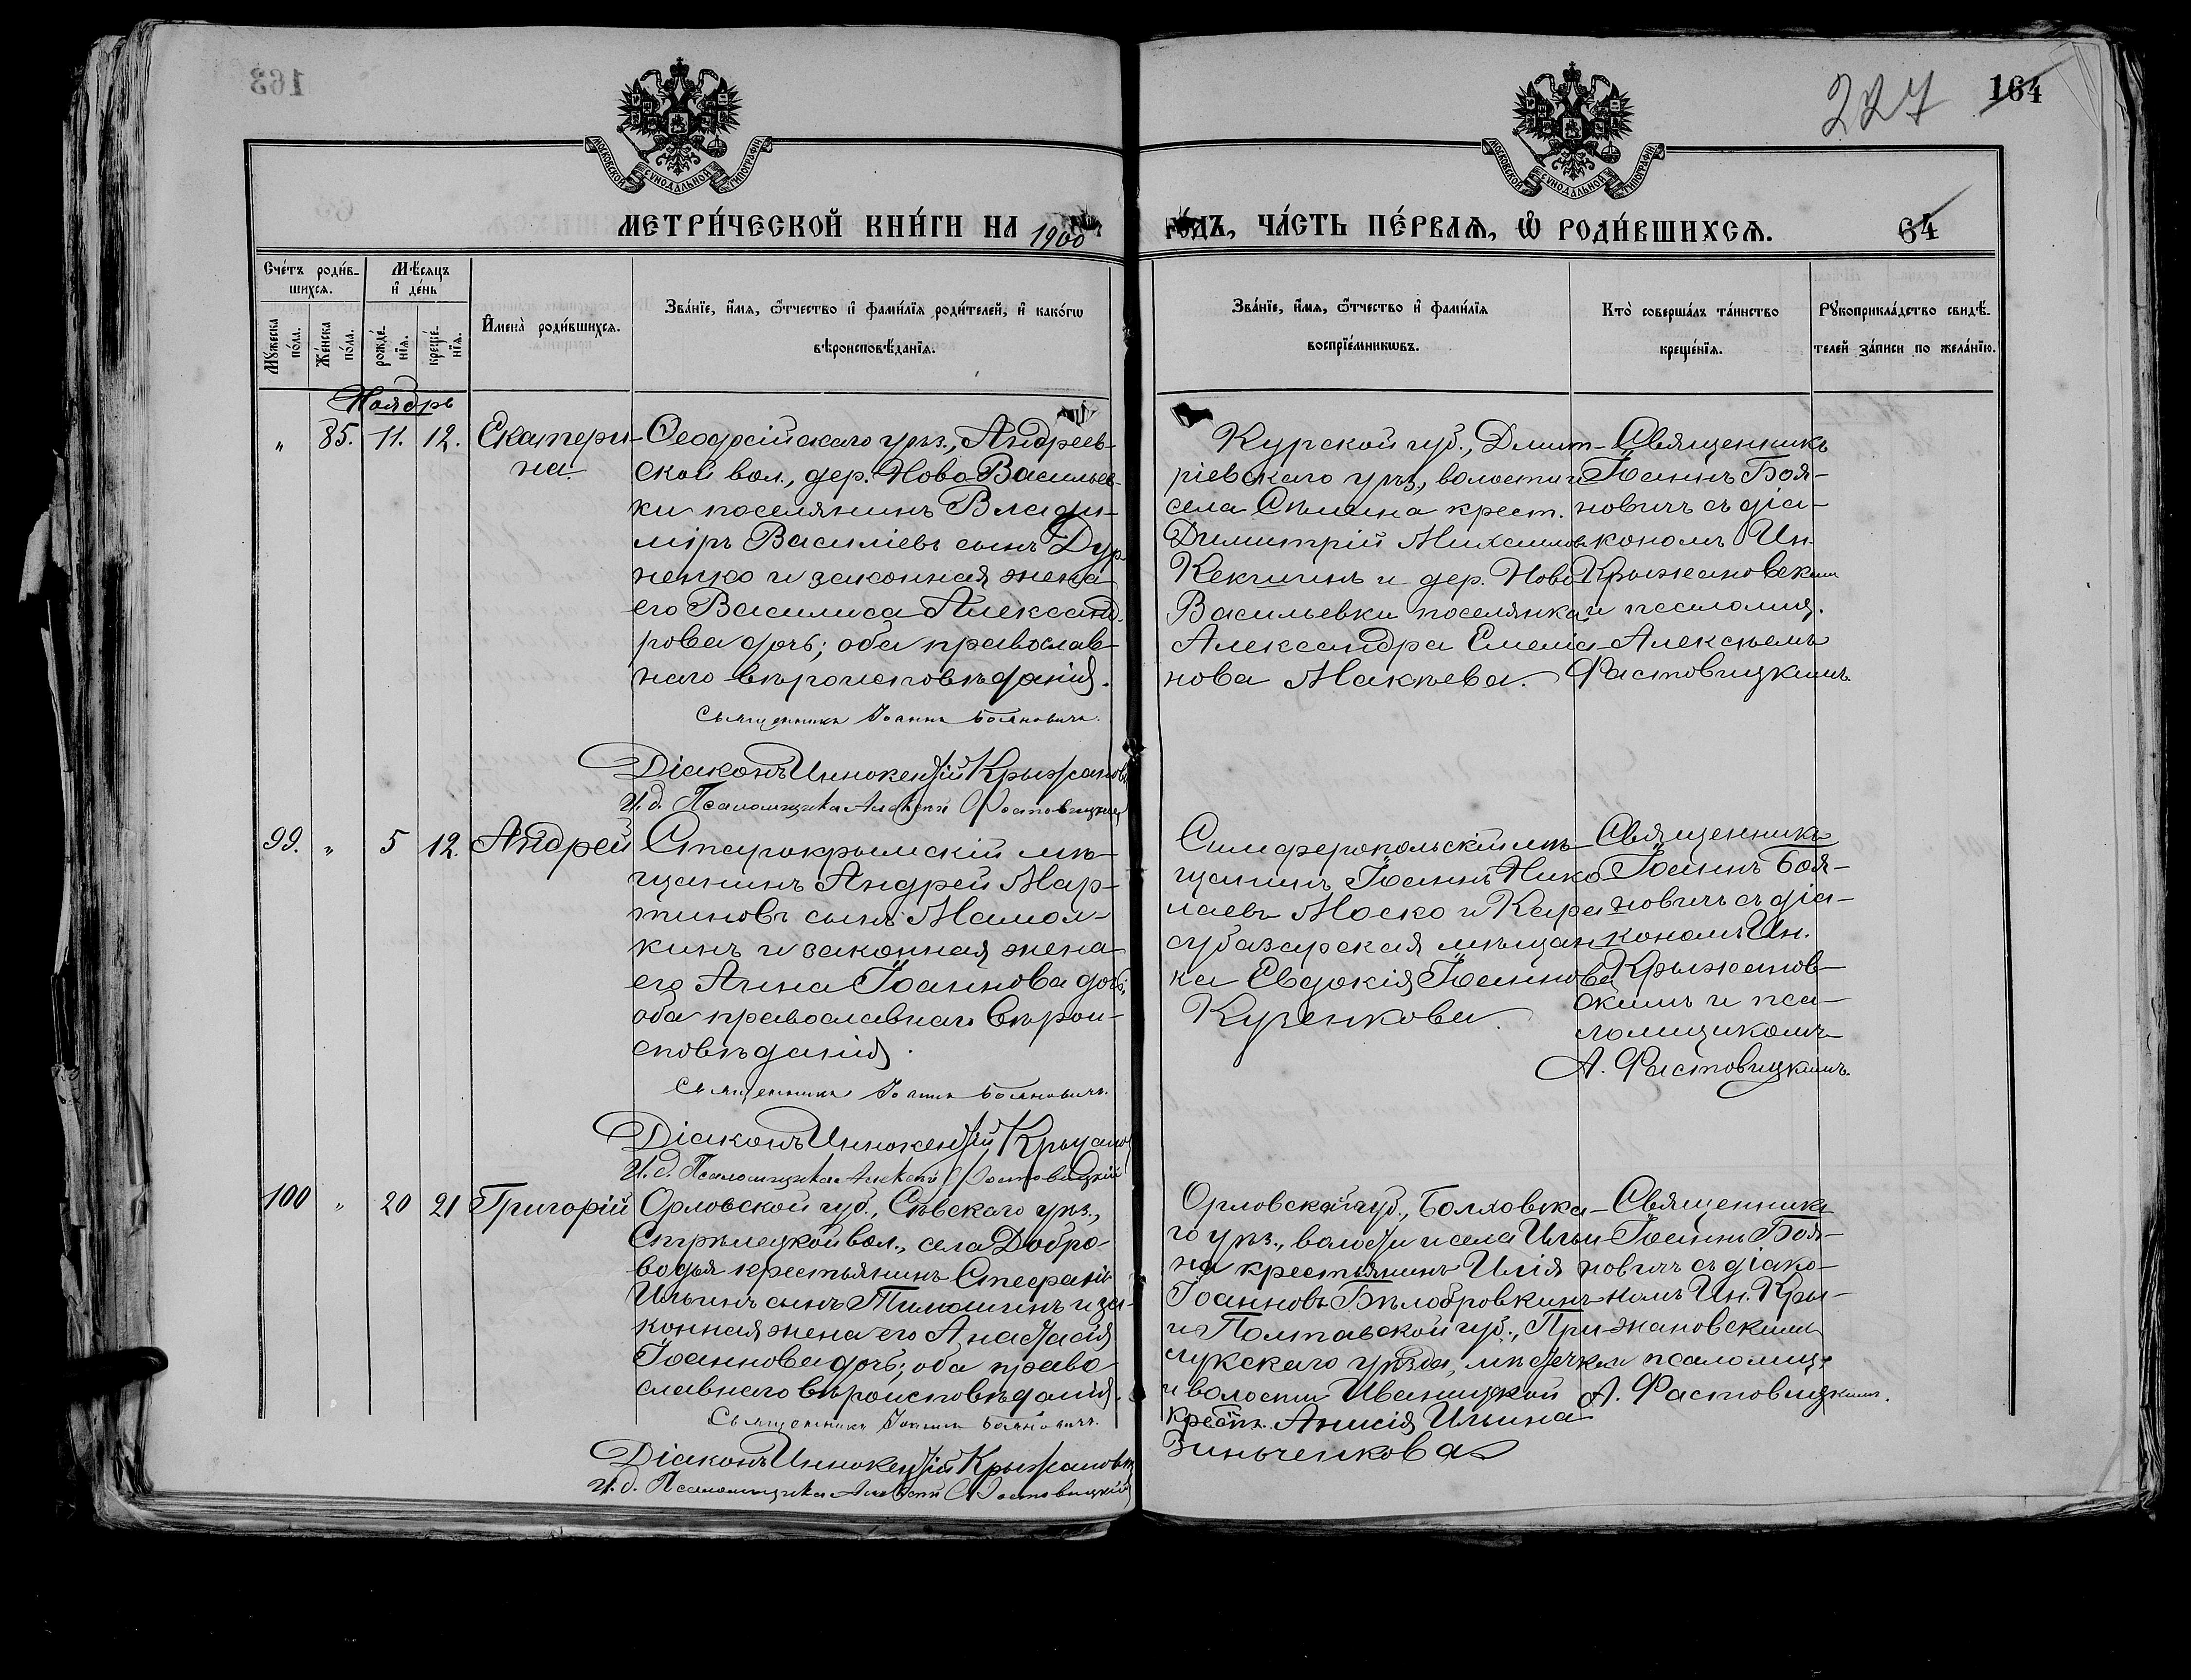 163
227
164
МОСКОВСКОЙ СѴНОДАЛЬНОЙ ТИПОГРАФІИ
МОСКОВСКОЙ СѴНОДАЛЬНОЙ ТИПОГРАФІИ
МЕТРИ́ЧЕСКОЙ КНИ́ГИ НА 1900
ГО́ДЪ, ЧА́СТЬ ПЕ́РВАѦ, Ѽ РОДИ́ВШИХСѦ.
64
Сче́тъ роди́в-
шихсѧ.
Мѣ́сѧцъ
и҆ де́нь
Мꙋ́жеска
по́ла.
Же́нска
по́ла.
рожде́-
нїѧ.
креще́-
нїѧ.
И҆мена̀ роди́вшихсѧ.
Зва́нїе, и҆́мѧ, ѻ҆́тчество и҆ фами́лїѧ роди́телей, и҆ како́гѡ
вѣроисповѣ́данїѧ.
Зва́нїе, и҆́мѧ, ѻ҆́тчество и҆ фами́лїѧ
воспрїе́мникѡвъ.
Кто̀ соверша́лъ та́инство
креще́нїѧ.
Рꙋкоприкла́дство свидѣ́-
телей за́писи по жела́нїю.
Ноябрь
" 85. 11. 12. Екатери-
на.
Ѳеодосійскаго уѣз., Андреев-
ской вол., дер. Ново-Васильев-
ки поселянинъ Влади-
міръ Василіевъ сынъ Дур-
ненко и законная жена
его Василиса Александ-
рова дочь; оба православ-
наго вѣроисповѣданія.
Священникъ Іоаннъ Бояновичъ.
Діаконъ Иннокентій Крыжановс
И. д. Псаломщика Алексѣй Фастовицкій
Курской губ., Дмит-
ріевскаго уѣз., волости и
села крест.
Димитрій Михаиловъ
Кекшинъ и дер. Ново
Васильевки поселянка
Александра Емелiа-
нова Макѣева.
Священникъ
Іоаннъ Боя-
новичъ съ діа-
кономъ Ин.
Крыжановским
и псаломщ.
Алексѣемъ
Фастовицкимъ.
99. " 5 12. Андрей
Старокрымскій мѣ-
щанинъ Андрей Мар-
тиновъ сынъ Мамол-
кинъ и законная жена
его Анна Іоаннова дочь;
оба православнаго вѣрои-
сповѣданія.
Священникъ Іоаннъ Бояновичъ.
Діаконъ Иннокентій Крыжано
И. д. Псаломщика Алексѣй Фастовицкій
Симферопольскій мѣ-
щанинъ Іоаннъ Нико-
лаевъ Моско и Кара-
субазарская мѣщан-
ка Евдокія Іоаннова
Куценкова.
Священникъ
Іоаннъ Боя-
новичъ съ діа-
кономъ Ин.
Крыжанов-
скимъ и пса-
ломщикомъ
А. Фастовицкимъ.
100 " 20 21 Григорій
Орловской губ., Сѣвскаго уѣз.,
Стрѣлецкой вол., села Добро-
водья крестьянинъ Стефанъ
Ильинъ сынъ Тимошинъ и за-
конная жена его Анастасія
Іоаннова дочь; оба право-
славнаго вѣроисповѣданія.
Священникъ Іоаннъ Бояновичъ.
Діаконъ Иннокентій Крыжановск
И. д. Псаломщика Алексѣй Фастовицкій
Орловской губ., Болховска-
го уѣз., волости и села Ильи-
на крестьянинъ Илія
Іоанновъ Бѣлобровкинъ
и Полтавской губ., При-
лукскаго уѣзда, мѣстечка
и волости Иваницкой
крест. Анисія Ильина
Зинченкова
Священникъ
Іоаннъ Боя-
новичъ съ діако-
номъ Ин. Кры-
жановскимъ
и псаломщ.
А. Фастовицкимъ.